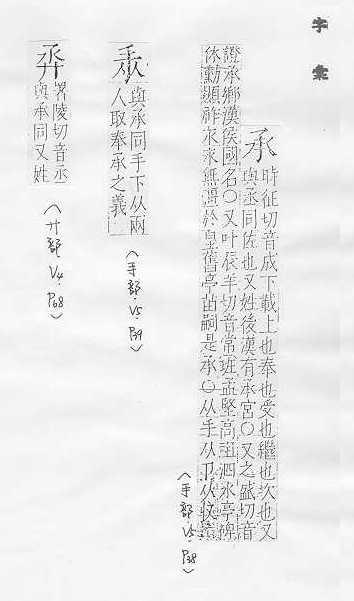 字彙
承
時征切音成下載上也奉也受也繼也次也又
與丞同佐也又姓後漢有承宮〇又之盛切音
證承鄉漢侯國名〇又叶辰羊切音常班孟堅高祖泗水亭碑
休勳顯祚永永無疆於皇舊亭苗嗣是承〇从手从卩从
(手部.V5.P38)
與承同手下从兩
人取奉承之義
(手部.V5.P39)
𢍏
署陵切音丞
與承同又姓
(廾部.V4.P68)